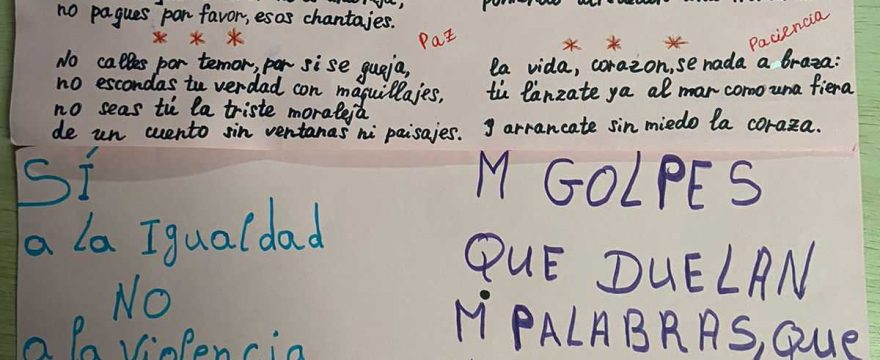 no pagues por favor, esos chantajes.
* * *
Paz
No calles por temor, por si se queja,
no escondas tu verdad con maquillajes,
no seas tú la triste moraleja
de un cuento sin ventanas ni paisajes.
* * *
Paciencia
la vida, corazon, se nada a braza:
tú lánzate ya al mar como una fiera
y arrancate sin miedo la coraza.
SÍ
a la Igualdad
NO
a la Violencia
NI GOLPES
QUE DUELAN
NI PALABRAS, QUE